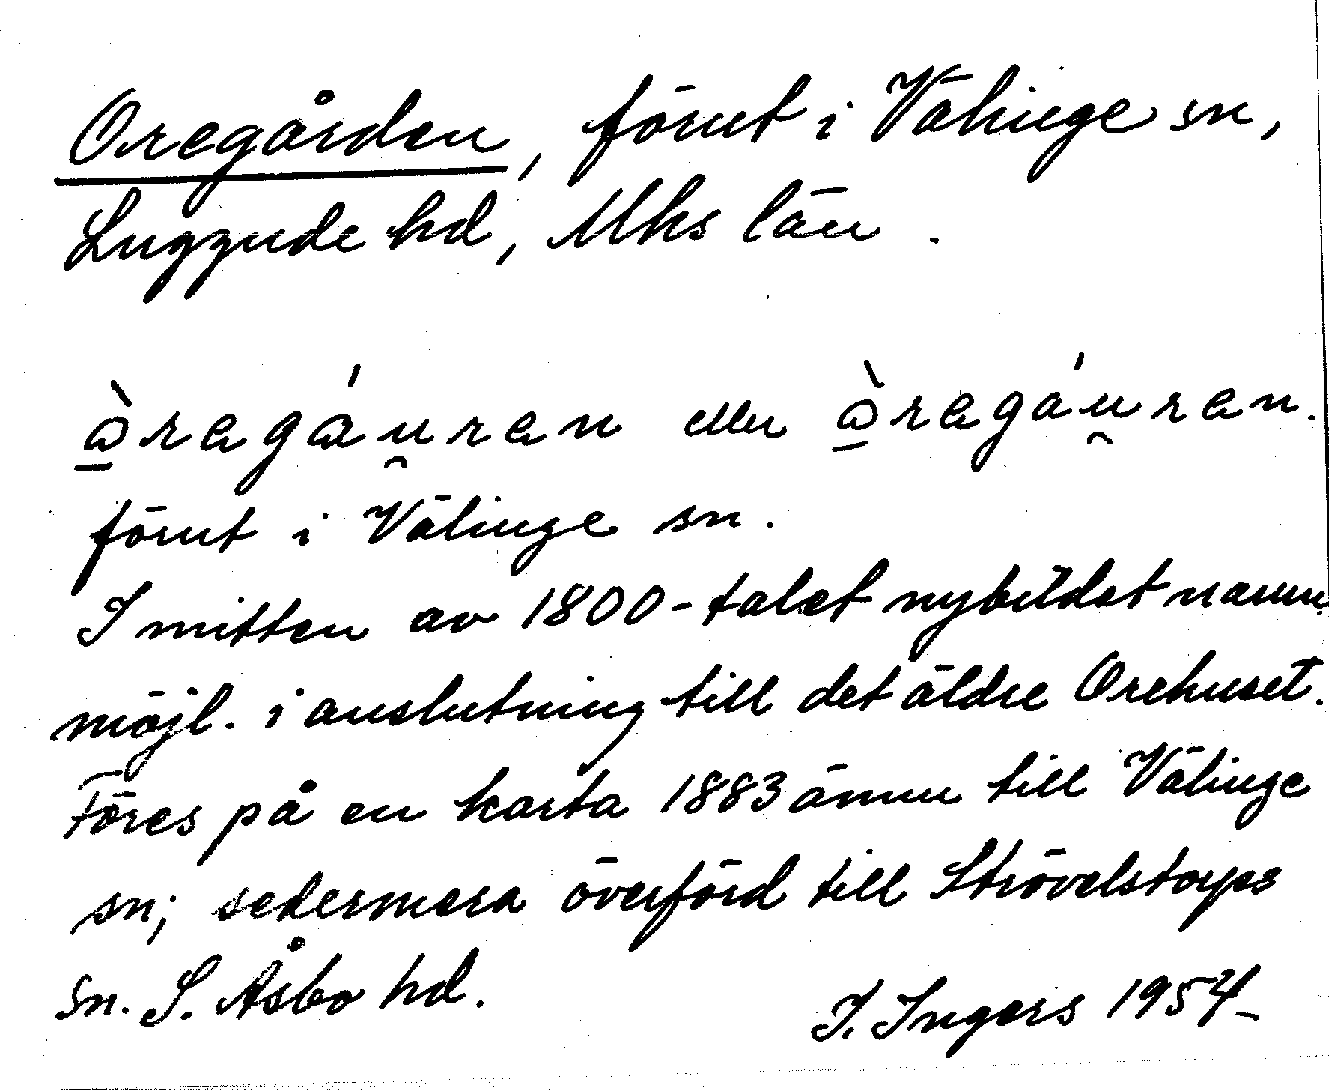 Oregården, förut i Välinge sn,
Luggude hd, Mhs län.
ɑ̀ragáu̯ran eller ɑ̀ragáu̯ran.
förut i Välinge sn.
I mitten av 1800-talet nybildat namn
möjl. i anslutning till det äldre Orehuset.
Föres på en karta 1883 ännu till Välinge
sn; sedermera överförd till Strövelstorps
sn. S. Åsbo hd.
I. Ingers 1954